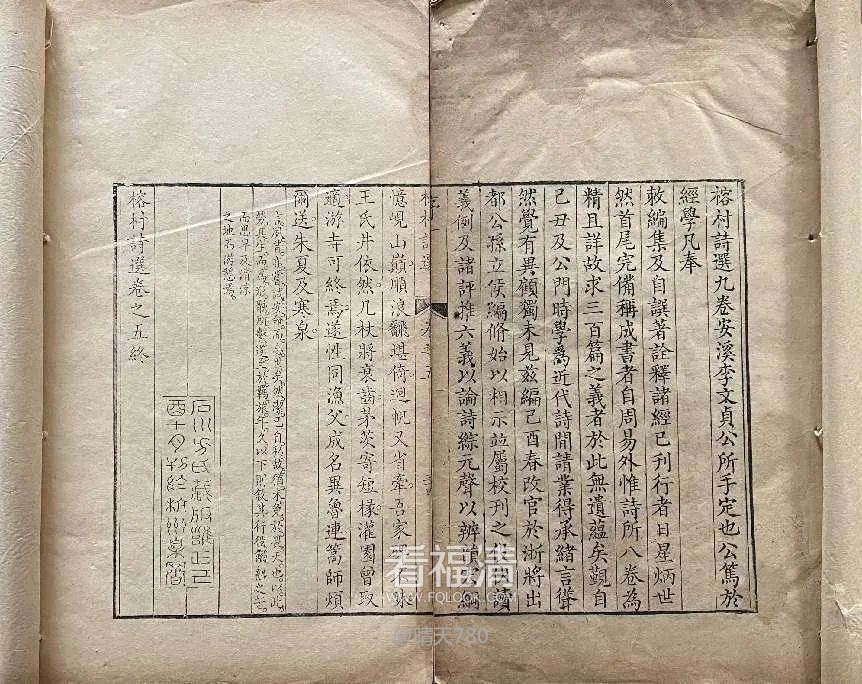 榕村詩選九卷安溪李文貞公所手定也公篤於
經學凡奉
敕編集及自撰著詮釋諸經已刊行者日星炳世
然首尾完備稱成書者自周易外惟詩所八卷為
精且詳故求三百篇之義者於此無遺蘊矣觀自
己丑及公門時學爲近代詩閒請業得承緒言聳
然覺有異顧獨未見茲編己酉春改官於浙將出
都公孫立侯編脩始以相示並屬校刊之伏讀
義例及諸評推六義以論詩綜元聲以辨綱
村詩選
憶峴山巔順浪翻堪倚迴帆又省牽吾家昧
王氏井依然几杖將衰齒茅茨寄短椽灌園曾取
適游寺可終焉遂性同漁父成名異魯連篙師煩
爾送朱夏及寒泉
之地而
榕村詩選卷之五終
石川方氏藏版雍正己
酉十月刊於
看福清
WWW.FQLOOK.COM
@晴天780